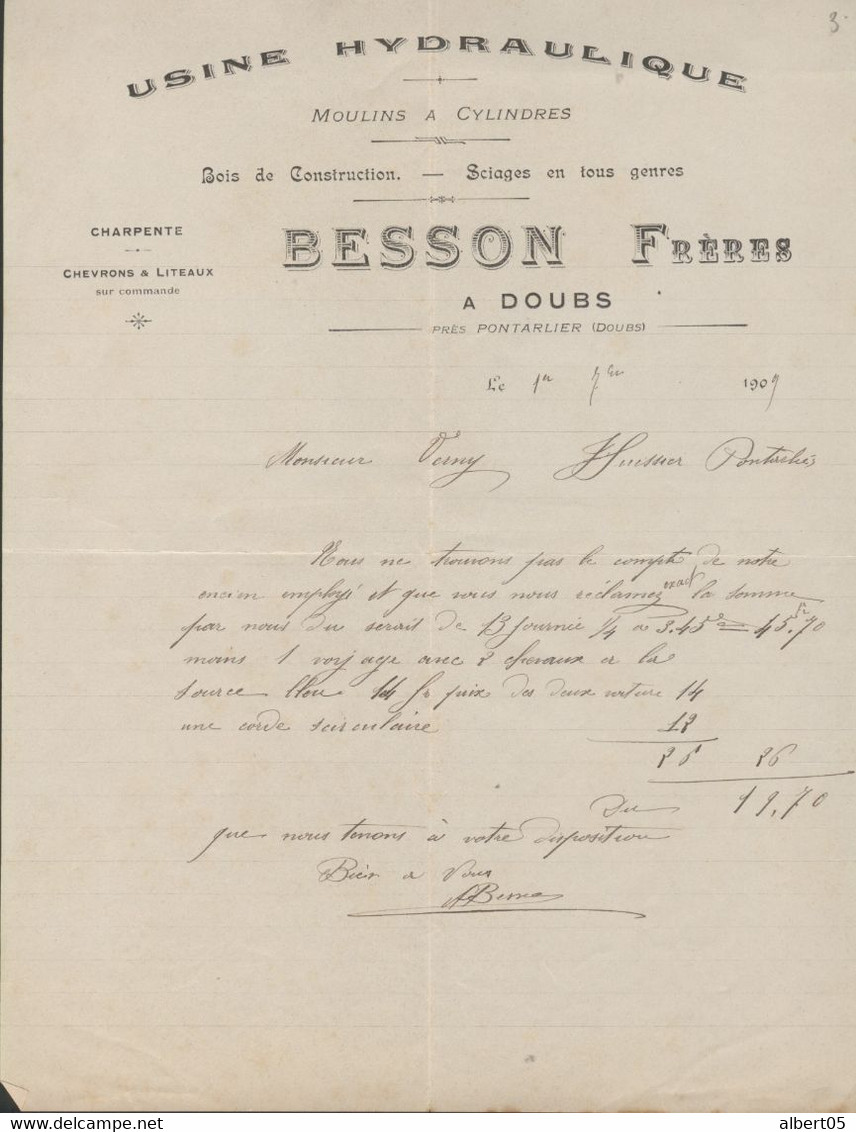 3.
USINE HYDRAULIQUE
MOULINS A CYLINDRES
Bois de Construction. — Sciages en tous genres
CHARPENTE
CHEVRONS & LITEAUX
sur commande
BESSON FRÈRES
A DOUBS
PRÈS PONTARLIER (DOUBS)
Le 1er 7bre 1909
Monsieur Verny Huissier Pontarlier
Nous ne trouvons pas le compte de notre
encien employé et que vous nous réclamez exact la somme
par nous du serait de 13 journée 1/4 à 3.45 = 45.70
moins 1 voyage avec 2 chevaux a la
source bleu 14 fr prix des deux voiture 14
une corde 12
26 26
Du 19,70
que nous tenons à votre disposition
Bien a Vous
ABesson
albert05